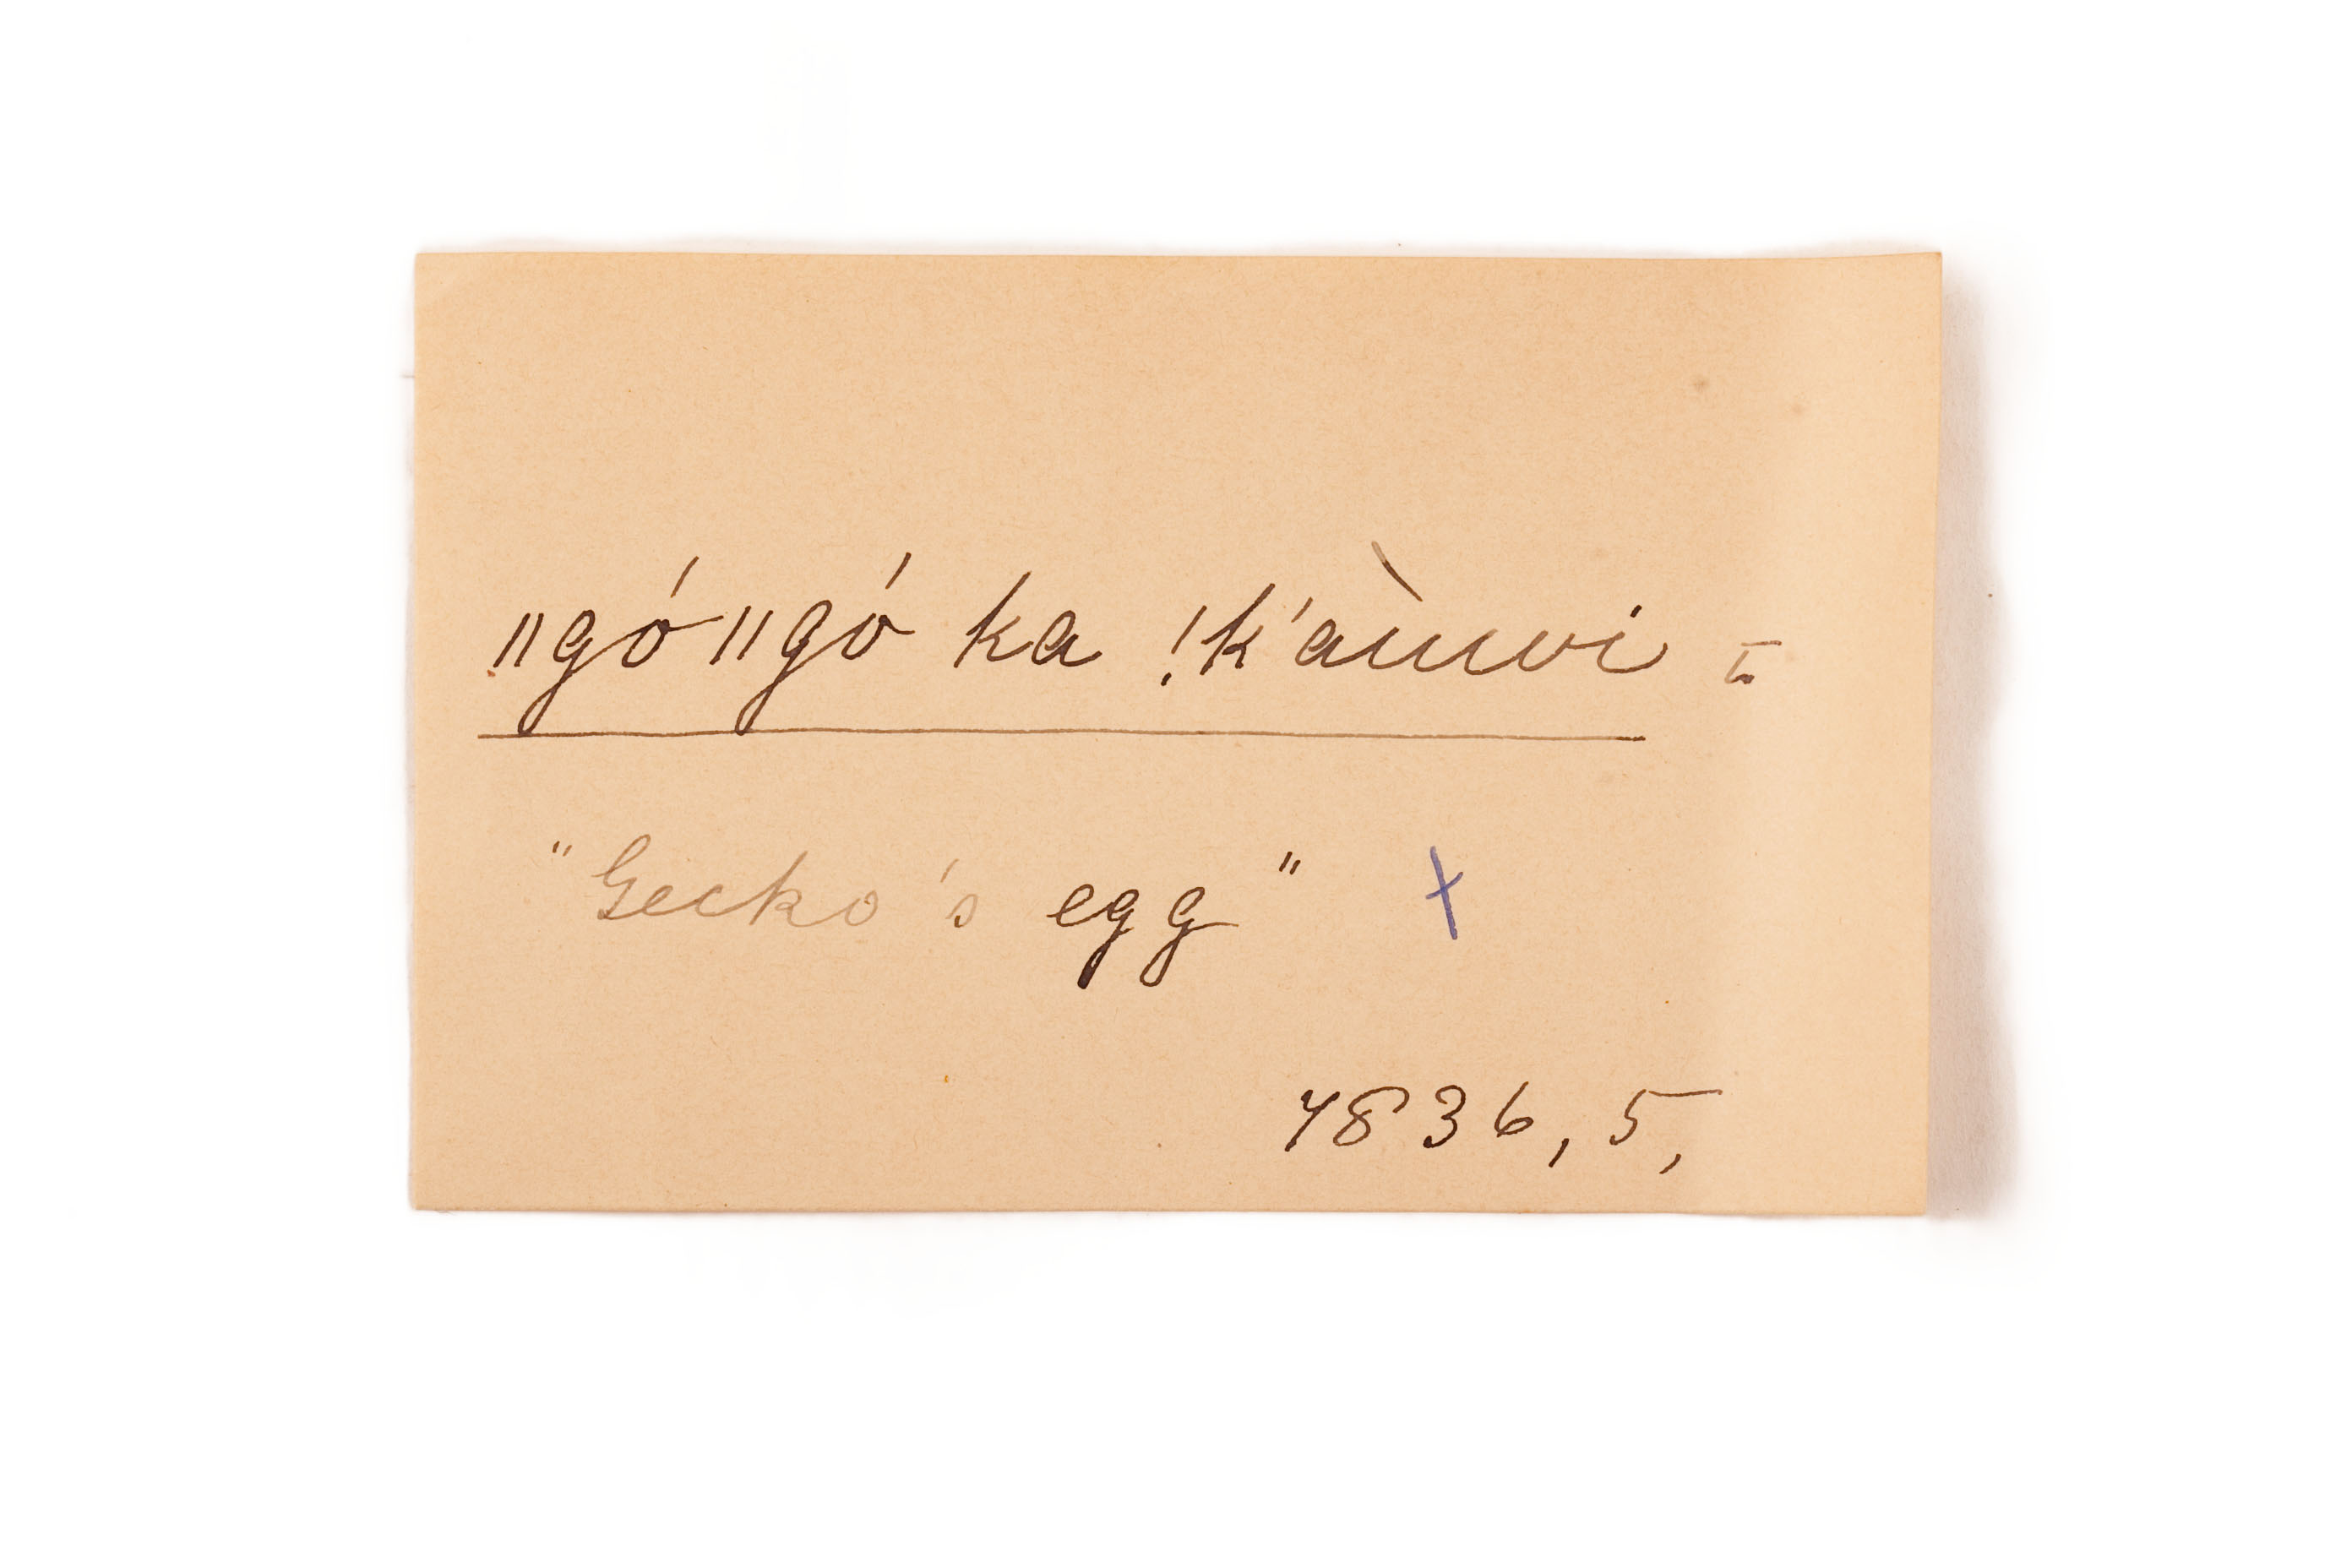 ǁgóǁgó ka !k'àuwi =
"Gecko's egg" x
7836, 5,